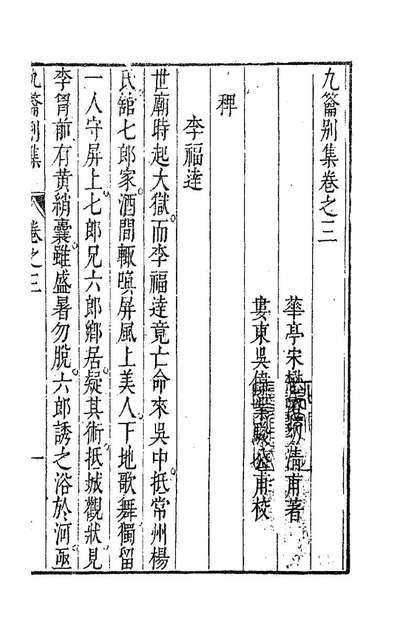 九籥别集卷之三
華亭宋懋澄幼清甫著
婁東吳偉業駿公甫校
稗
李福達
世廟時起大獄而李福達竟亡命來吳中抵常州楊
氏館七郎家酒間輒喚屏風上美人下地歌舞獨留
一人守屏上七郎兄六郎鄉居疑其術抵城觀狀見
李胷前有黄綃囊雖盛暑勿脫六郎誘之浴於河亟
九籥别集
卷之三
一